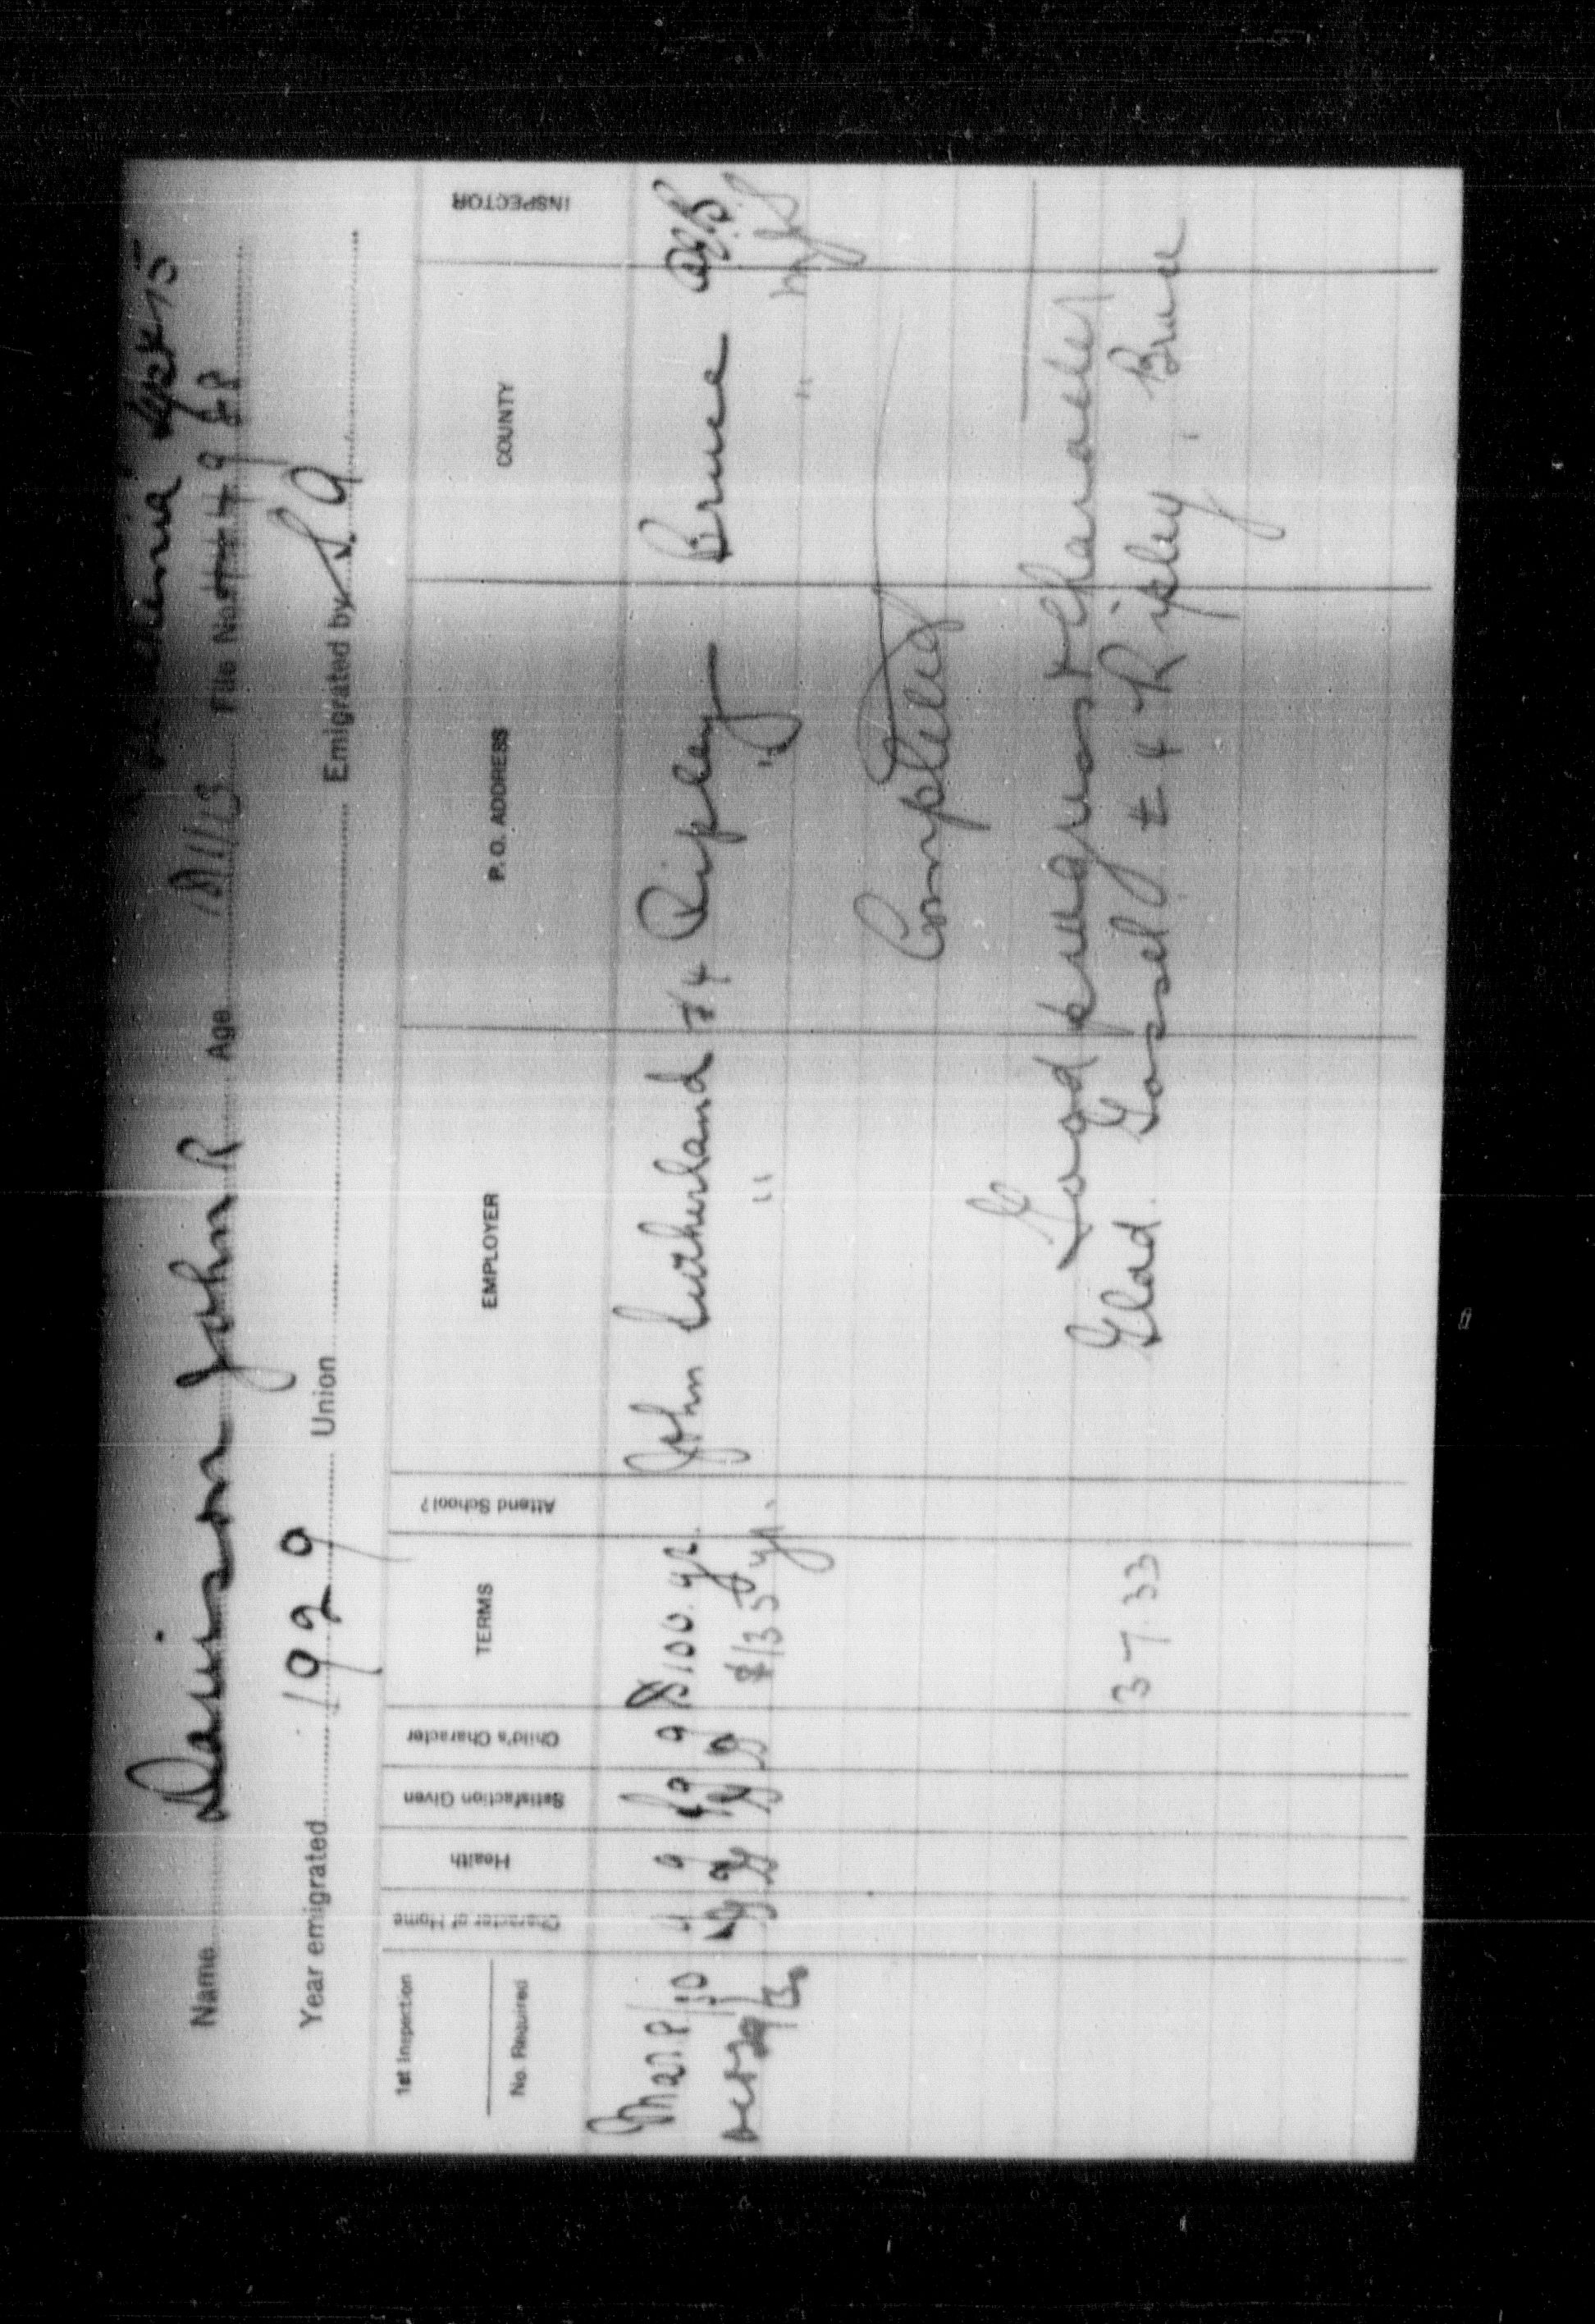 Sept 15
Name Davison John R Age File No. 9
Year emigrated 1929 Union Emigrated by S A
1st Inspection No. Required Character of Home Health Satisfaction Given Child's Character TERMS Attend School? EMPLOYER P. O. ADDRESS COUNTY INSPECTOR
Mar 8/30 g g g $100. yr. John Sutherland #4 Ripley Bruce
Oct 29/30 G G G G $135 yr. " " "
Completed
Good progress & character
3 7 33 Glad. Gossel # 4 Ripley, Bruce